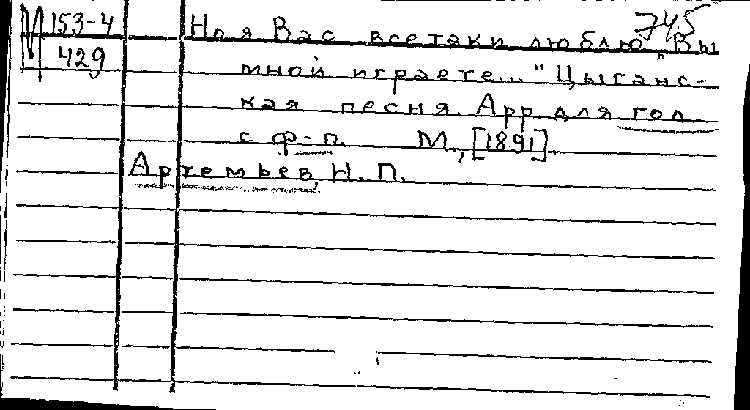 М 153-4
429
745
Но я Вас всетаки люблю „Вы
мной играете..." Цыганс-
кая песня. Арр. для гол
с ф-п. М., [1891].
Артемьев, Н. П.